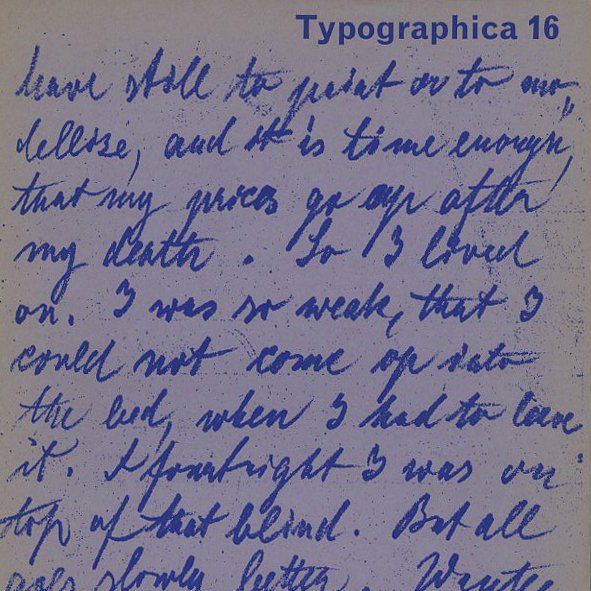 Typographica 16
have still to paint or to mo„
dellise, and it is time enough,
that my prices go up after
my death. So I lived
on. I was so weak, that I
could not come op into
the bed, when I had to leave
it. A fourtnight I was on
top of that blind. But all
goes slowly better.